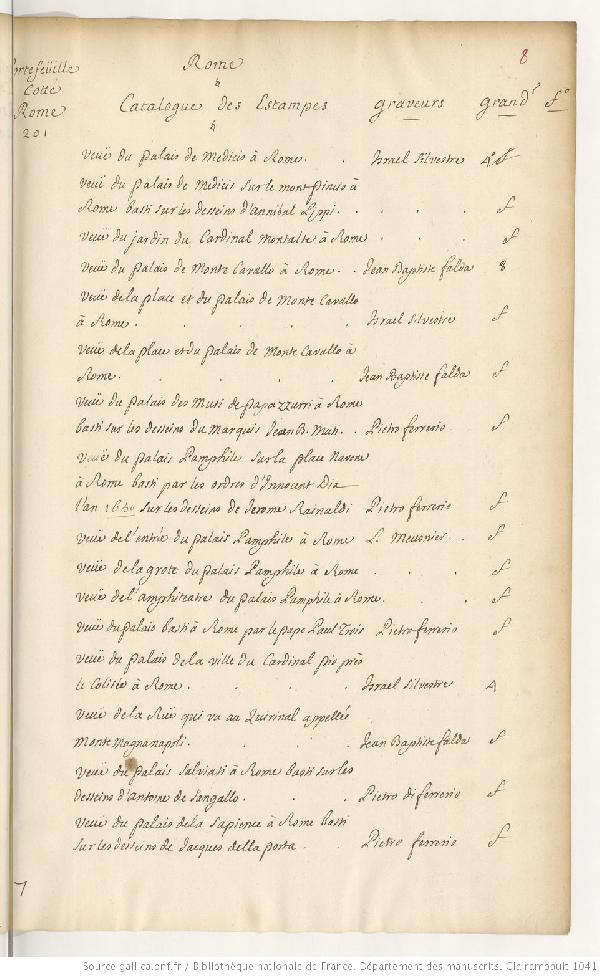 8
Portefeüille
Cotté
Rome
201
Rome
Catalogue des Estampes graveurs grand.r f.o
veuë du palais de Medicis à Rome. Israel Silvestre
veuë du palais de Medicis sur le mont pincio à
Rome basti sur les desseins d'annibal Lippi. f
veuë du jardin du Cardinal Montalte à Rome f
veuë du palais de Monte Cavallo à Rome. Jean Baptiste falda 8
veuë de la place et du palais de Monte Cavallo
à Rome. Israel Silvestre f
veuë de la place et du palais de Monte Cavallo à
Rome. Jean Baptiste falda f
veuë du palais des Muti de papazzurri à Rome
basti sur les desseins du Marquis Jean B. Muti. Pietro ferrerio f
veuë du palais Pamphile sur la place Navone
à Rome basti par les ordres d'Innocent Dix
l'an 1650 sur les desseins de Jerome Rainaldi Pietro ferrerio f
veuë de l'entrée du palais Pamphile à Rome L. Meunier f
veuë de la grote du palais Pamphile à Rome f
veuë de l'amphiteatre du palais Pamphile à Rome. f
veuë du palais basti à Rome par le pape Paul Trois Pietro ferrerio f
veuë du palais de la ville du Cardinal pio près
le Colisée à Rome. Israel Silvestre 4
veuë de la Ruë qui va au Quirinal appellée
Monte Magnanapoli. Jean Baptiste falda f
veuë du palais salviati à Rome basti sur les
desseins d'Antoine de sangallo. Pietro di ferrerio f
veuë du palais de la sapience à Rome basti
sur les desseins de Jacques della porta. Pietro ferrerio f
Source gallica.bnf.fr / Bibliothèque nationale de France. Département des manuscrits. Clairambault 1041